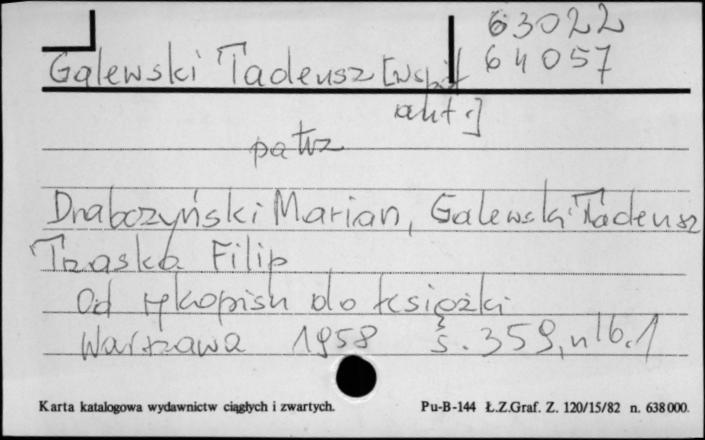 63022
Galewski Tadeusz [współ 64057
aut.]
patrz
Drabczyński Marian, Galewski Tadeusz
Trzaska Filip
Od rękopisu do książki
Warszawa 1958 s. 359, nlb. 1
Karta katalogowa wydawnictw ciągłych i zwartych. Pu-B-144 Ł.Z.Graf. Z. 120/15/82 n. 638000.